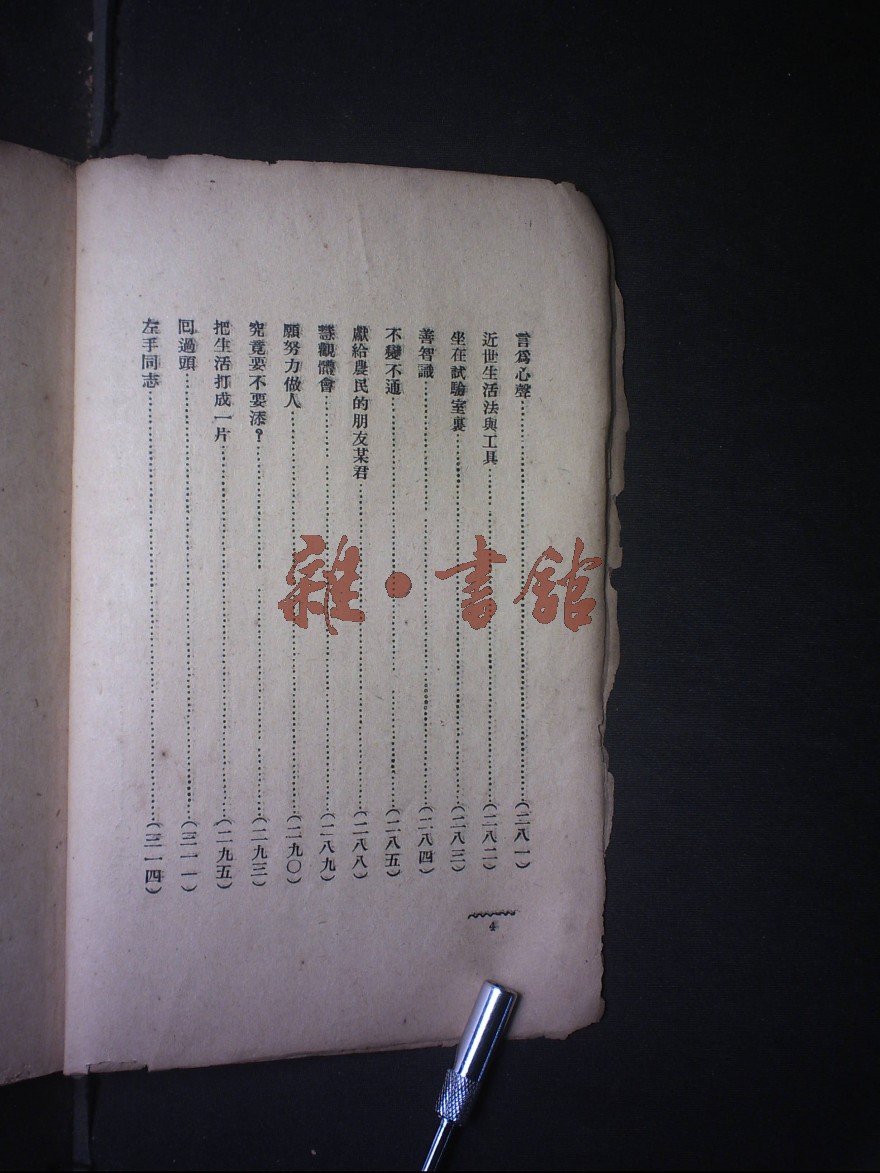 言爲心聲……(二八一)
近世生活法與工具……(二八二)
坐在試驗室裏……(二八三)
善智識……(二八四)
不變不通……(二八五)
獻給農民的朋友某君……(二八八)
慧觀體會……(二八九)
願努力做人……(二九〇)
究竟要不要添?……(二九三)
把生活打成一片……(二九五)
回過頭……(三一一)
左手同志……(三一四)
4
雜·書館